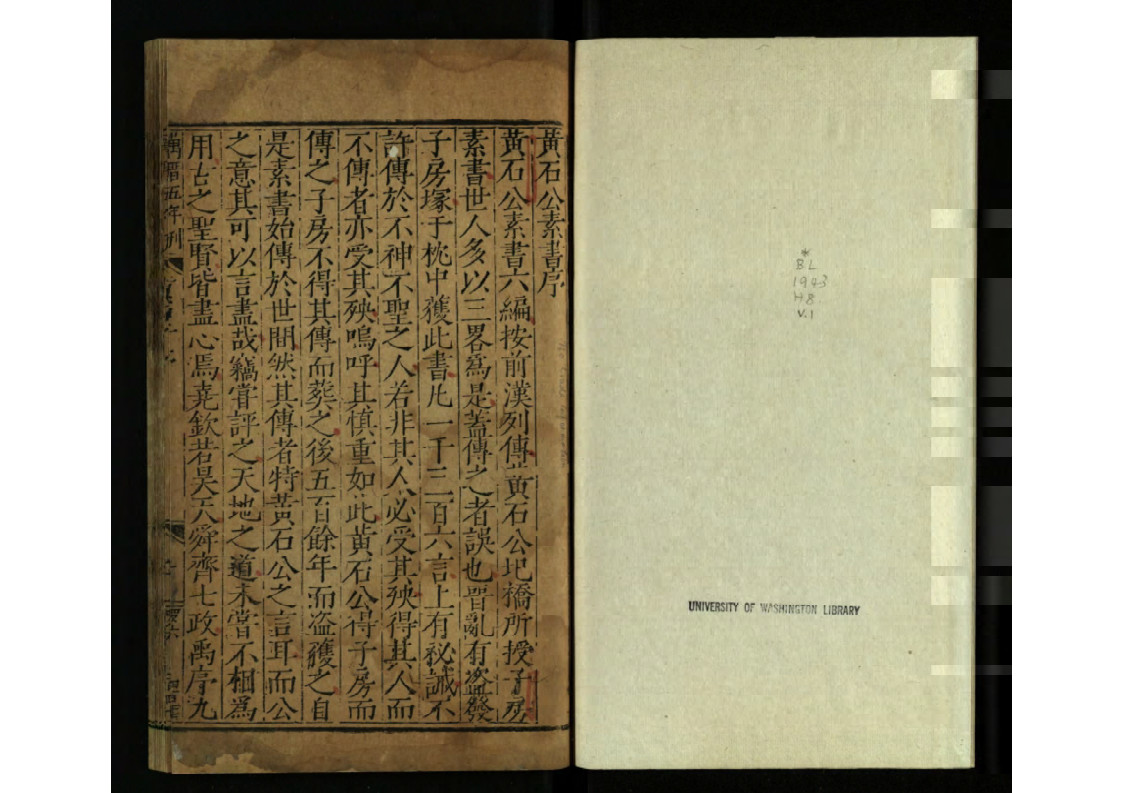 *
BL
1943
H8
V.1
UNIVERSITY OF WASHINGTON LIBRARY
黃石公素書序
黃石公素書六編按前漢列傳黃石公圯橋所授子房
素書世人多以三畧爲是蓋傳之者誤也晉亂有盜發
子房塚于枕中獲此書凡一千三百六言上有秘誡不
許傳於不神不聖之人若非其人必受其殃得其人而
不傳者亦受其殃嗚呼其慎重如此黃石公得子房而
傳之子房不得其傳而葬之後五百餘年而盜獲之自
是素書始傳於世間然其傳者特黃石公之言耳而公
之意其可以言盡哉竊嘗評之天地之道未嘗不相爲
用古之聖賢皆盡心焉堯欽若昊天舜齊七政禹序九
五年刊